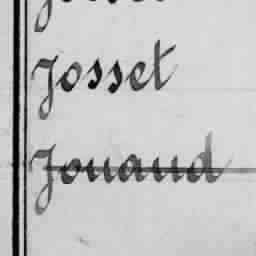 Josset
Jouaud